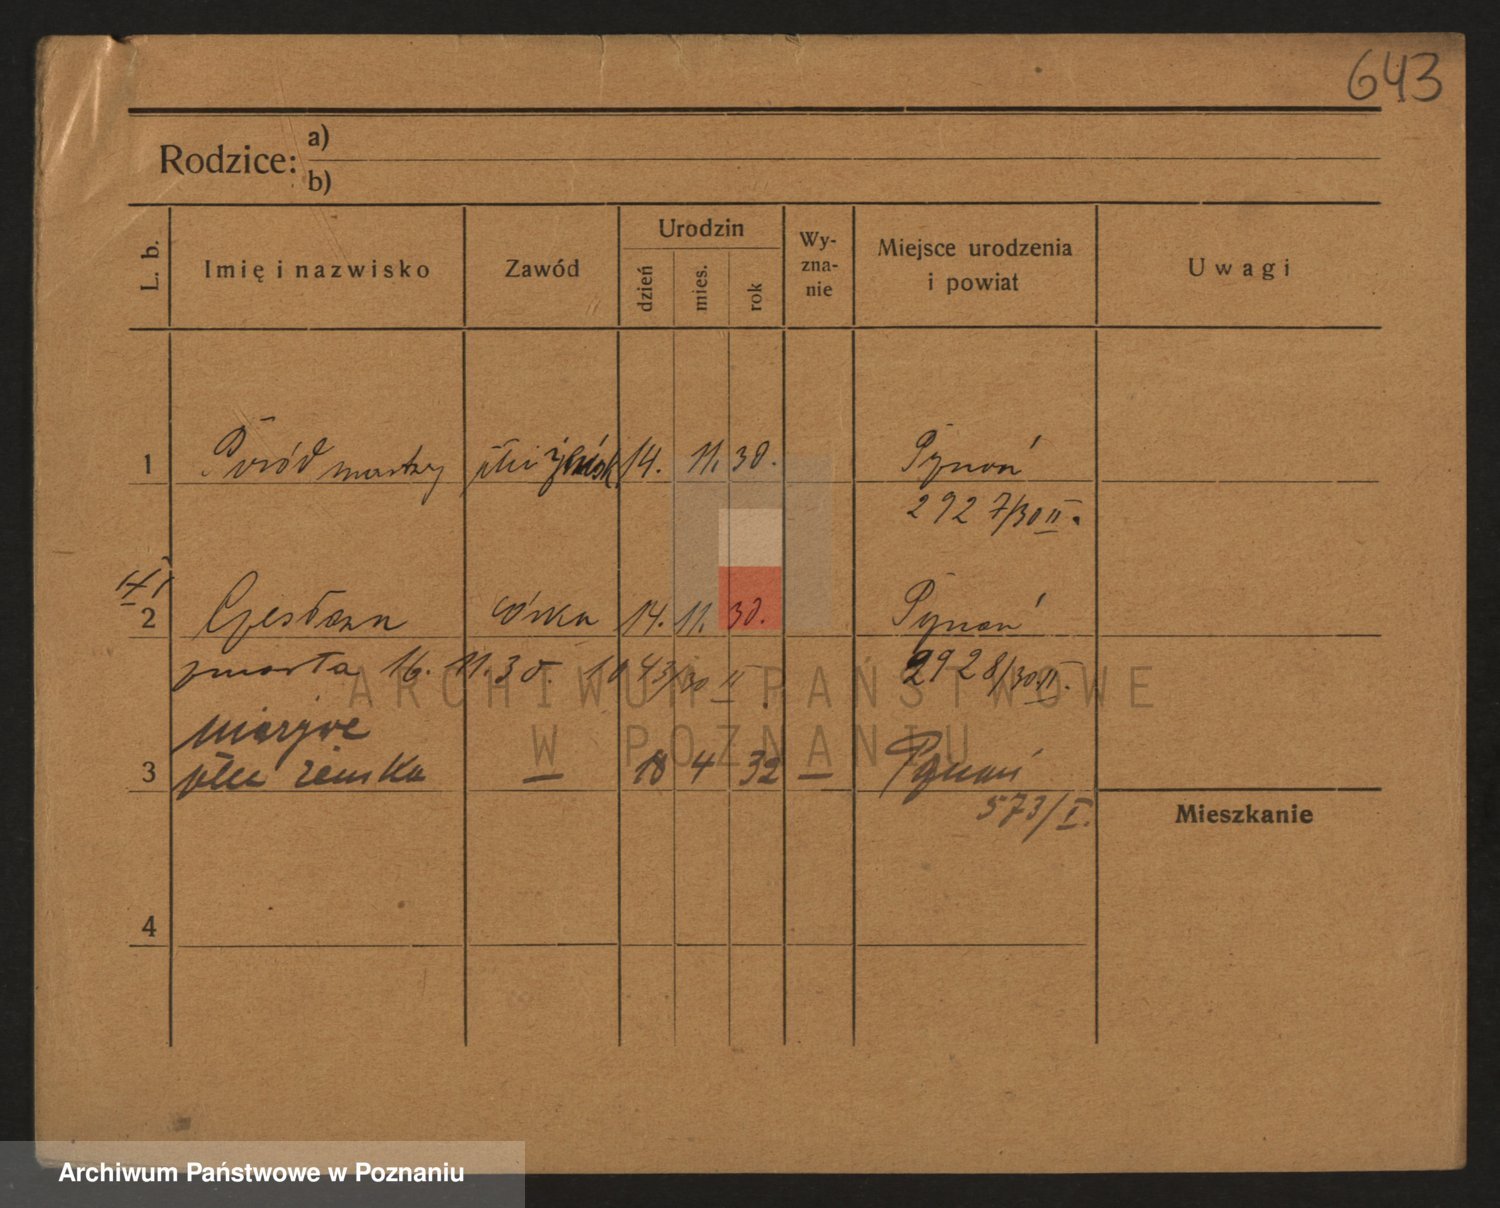 643
Rodzice: a)
b)
L. b.
Imię i nazwisko
Zawód
Urodzin
dzień
mies.
rok
Wy-
zna-
nie
Miejsce urodzenia
i powiat
Uwagi
1 Poród martwy płci 14. 11. 30. Poznań
2927/30 II.
2 Czesława córka 14. 11. 30. Poznań
zmarła 16. 11. 30. 1043/30 II. 2928/30 II.
3 płci żeńska — 18 4 32 — Poznań
573/I.
Mieszkanie
4
ARCHIWUM PAŃSTWOWE
W POZNANIU
Archiwum Państwowe w Poznaniu